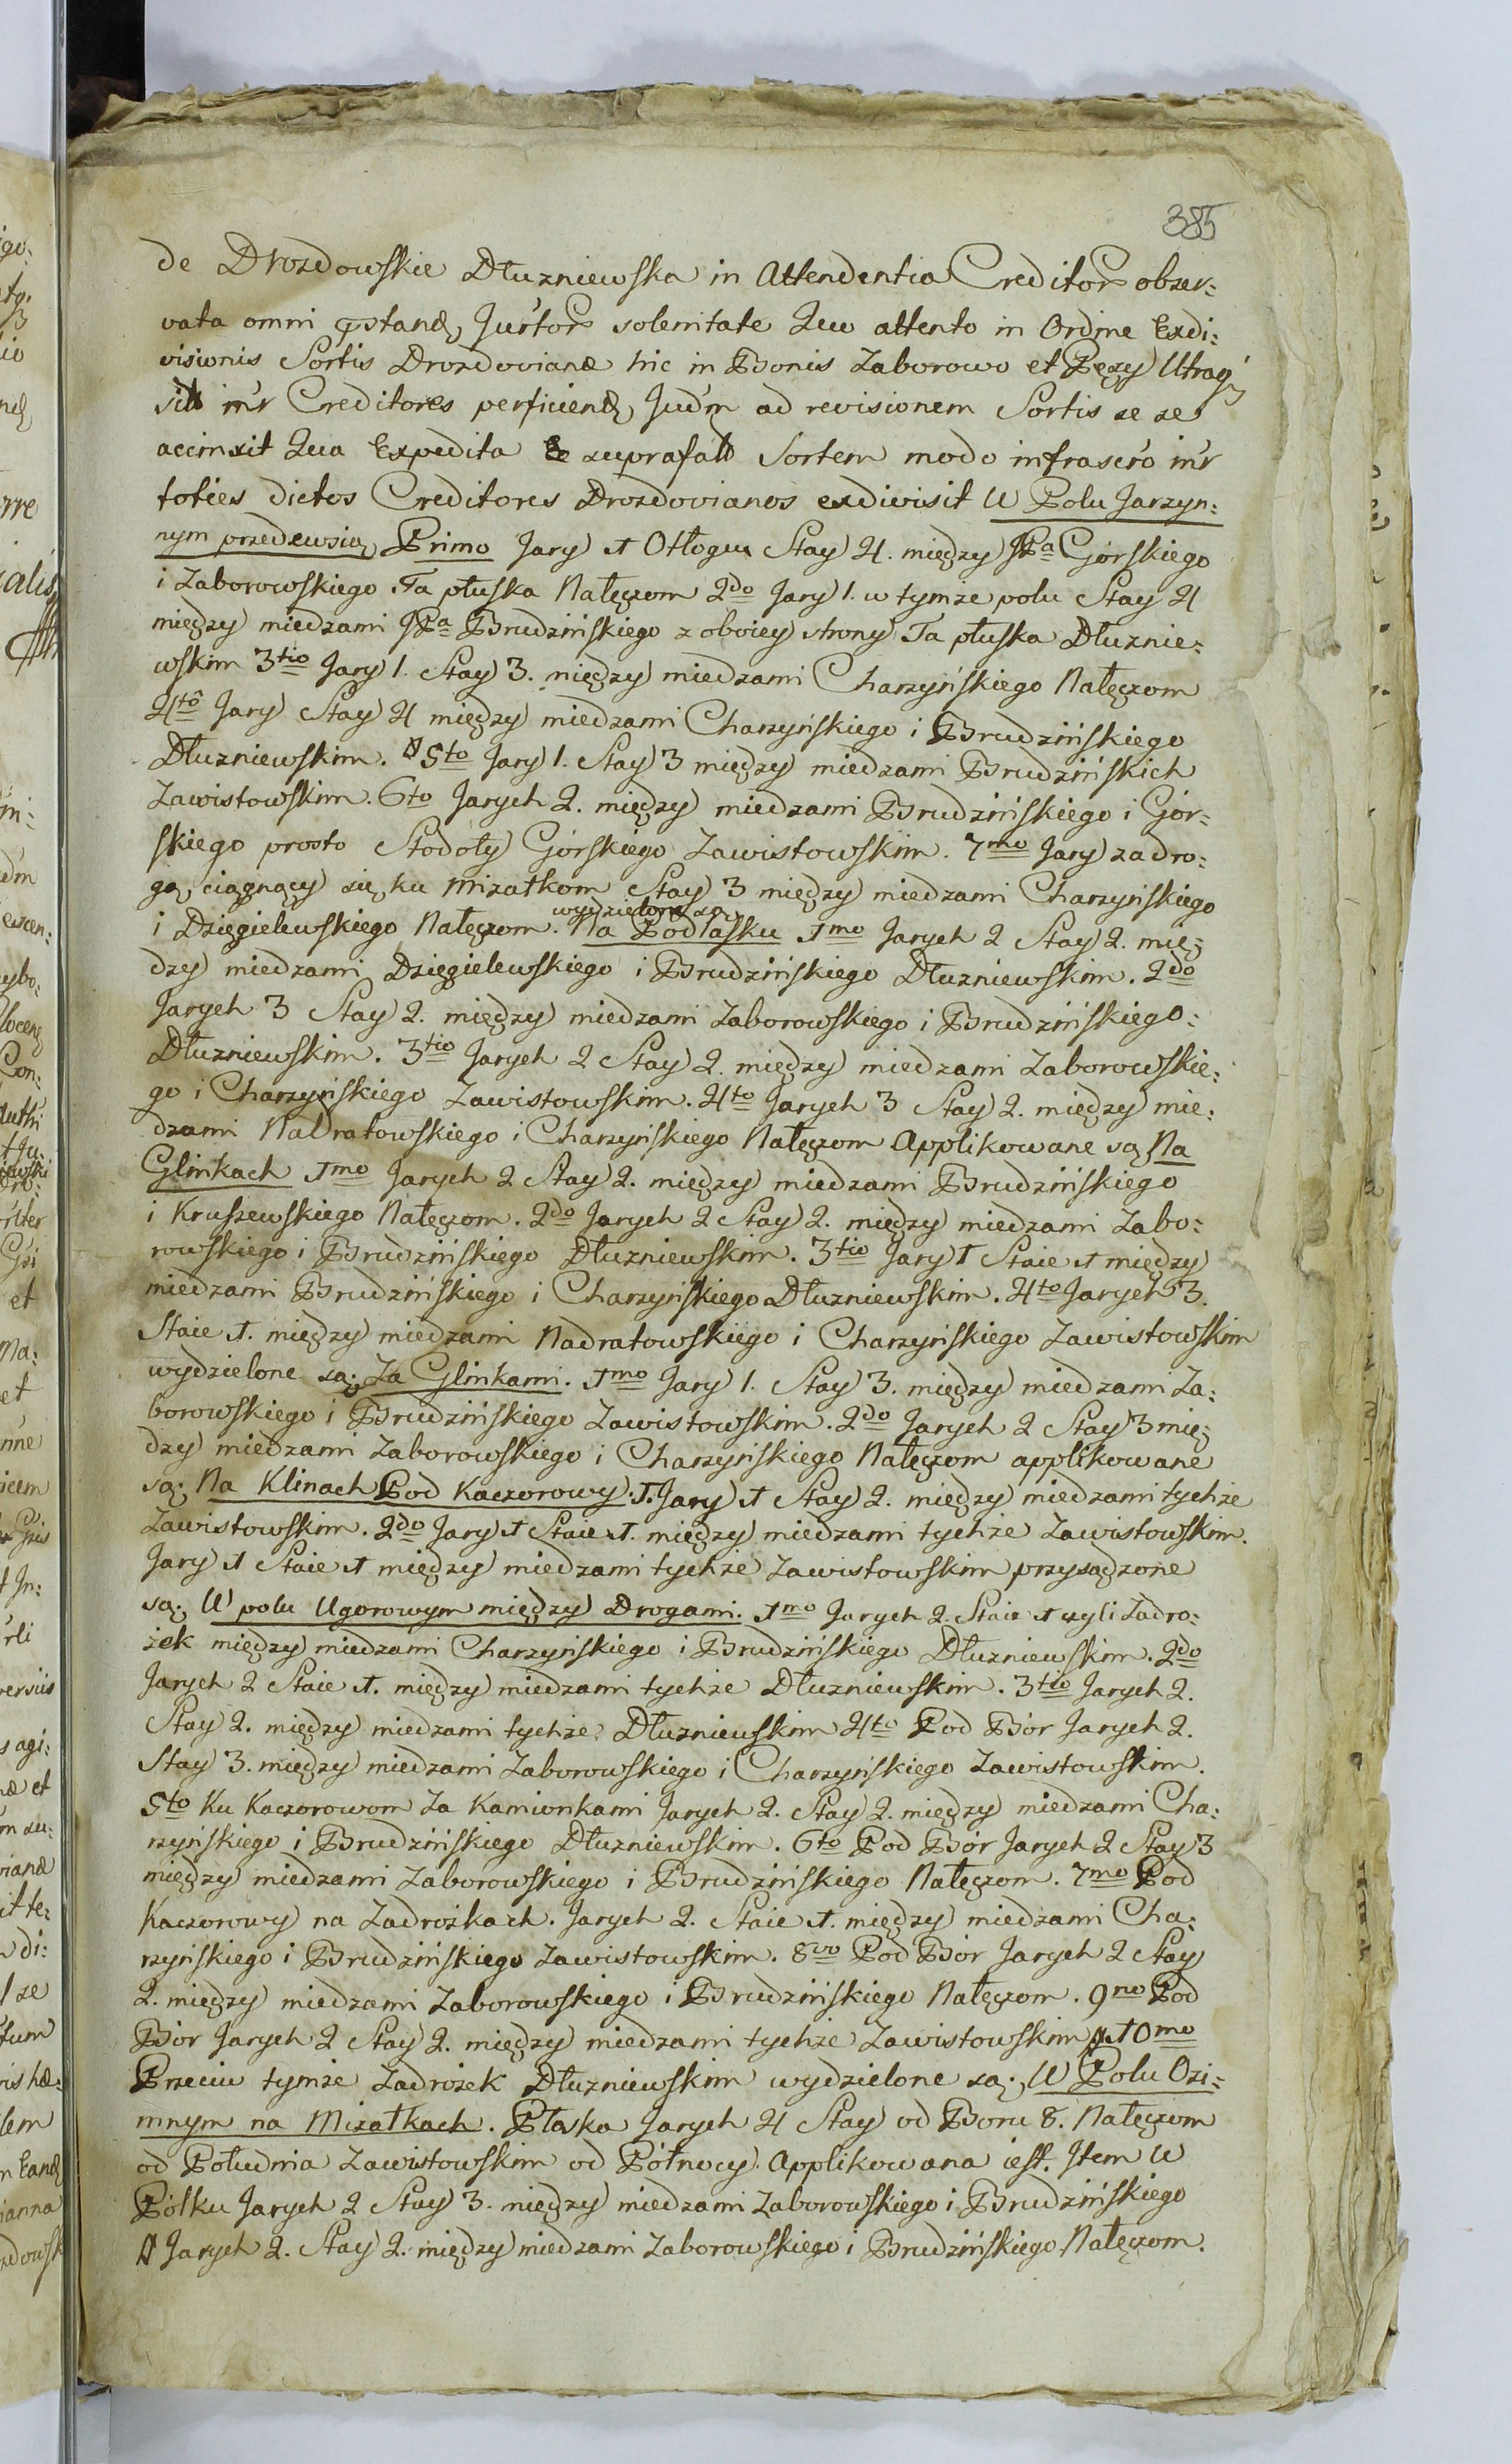 385
de Drozdowskie Dłuzniewska in Attendentia Creditor obser:
vata omni solenitate Quo attento in Ordine Exdi:
visionis Sortis Drozdovianæ hic in Bonis Zaborowo et Pęzy
Creditores Judm ad revisionem Sortis se se
accinxit Qua Expedita Sortem modo infrascro intr
toties dictos Creditores Drozdovianos exdivisit W Polu Jarzyn:
nym przedewsią Primo Jary 1 Odłogu Stay 4. między JPa Górskiego
i Zaborowskiego Ta płuska Nałęczom 2do Jary 1. w tymze polu Stay 4
między miedzami JPa Brudzińskiego z oboiey strony Ta płuska Dłuznie:
wskim 3tio Jary 1. Stay 3. między miedzami Charzyńskiego Nałęczom
4to Jary Stay 4 między miedzami Charzyńskiego i Brudzińskiego
Dłuzniewskim. 5to Jary 1. Stay 3 między miedzami Brudzińskich
Zawistowskim. 6to Jarych 2. między miedzami Brudzińskiego i Gór:
skiego prosto Stodoły Górskiego Zawistowskim. 7mo Jary za dro:
gą ciągnący się ku Mizatkom Stay 3 między miedzami Charzyńskiego
wydzielone są
i Dzięgielewskiego Nałęczom. Na Podłasku 1mo Jarych 2 Stay 2. mię:
dzy miedzami Dzięgielewskiego i Brudzińskiego Dłuzniewskim. 2do
Jarych 3 Stay 2. między miedzami Zaborowskiego i Brudzińskiego:
Dłuzniewskim. 3tio Jarych 2 Stay 2. między miedzami Zaborowskie:
go i Charzyńskiego Zawistowskim. 4to Jarych 3 Stay 2. między mie:
dzami Nadratowskiego i Charzyńskiego Nałęczom Applikowane są Na
Glinkach 1mo Jarych 2 Stay 2. między miedzami Brudzińskiego
i Kruszewskiego Nałęczom. 2do Jarych 2 Stay 2. między miedzami Zabo:
rowskiego i Brudzińskiego Dłuzniewskim. 3tio Jary 1 Staie 1 między
miedzami Brudzińskiego i Charzyńskiego Dłuzniewskim. 4to Jarych 3.
Staie 1. między miedzami Nadratowskiego i Charzyńskiego Zawistowskim
wydzielone są. Za Glinkami. 1mo Jary 1. Stay 3. między miedzami Za:
borowskiego i Brudzińskiego Zawistowskim. 2do Jarych 2 Stay 3 mię:
dzy miedzami Zaborowskiego i Charzyńskiego Nałęczom applikowane
są. Na Klinach Pod Kaczorowy. 1. Jary 1 Stay 2. między miedzami tychze
Zawistowskim. 2do Jary 1 Staie 1. między miedzami tychże Zawistowskim.
Jary 1 Staie 1 między miedzami tychże Zawistowskim przysądzone
są. W polu Ugorowym między Drogami. 1mo Jarych 2. Staie 1 czyli Zadro:
żek między miedzami Charzyńskiego i Brudzińskiego Dłuzniewskim. 2do
Jarych 2 Staie 1. między miedzami tychże Dłuzniewskim. 3tio Jarych 2.
Stay 2. między miedzami tychże Dłuzniewskim 4to Pod Bór Jarych 2.
Stay 3. między miedzami Zaborowskiego i Charzyńskiego Zawistowskim.
5to Ku Kaczorowom Za Kamionkami Jarych 2. Stay 2. między miedzami Cha:
rzyńskiego i Brudzińskiego Dłuzniewskim. 6to Pod Bór Jarych 2 Stay 3
między miedzami Zaborowskiego i Brudzińskiego Nałęczom. 7mo Pod
Kaczorowy na Zadrożkach. Jarych 2. Staie 1. między miedzami Cha:
rzyńskiego i Brudzińskiego Zawistowskim. 8vo Pod Bór Jarych 2 Stay
2. między miedzami Zaborowskiego i Brudzińskiego Nałęczom. 9no Pod
Bór Jarych 2 Stay 2. między miedzami tychże Zawistowskim 10mo
Przeciw tymże Zadrożek Dłuzniewskim wydzielone są. W Polu Ozi:
mnym na Mizatkach. Płaska Jarych 4 Stay od Boru 8. Nałęczom
od Południa Zawistowskim od Północy Applikowana iest. Item W
Pólku Jarych 2 Stay 3. między miedzami Zaborowskiego i Brudzińskiego
Jarych 2. Stay 2. między miedzami Zaborowskiego i Brudzińskiego Nałęczom.